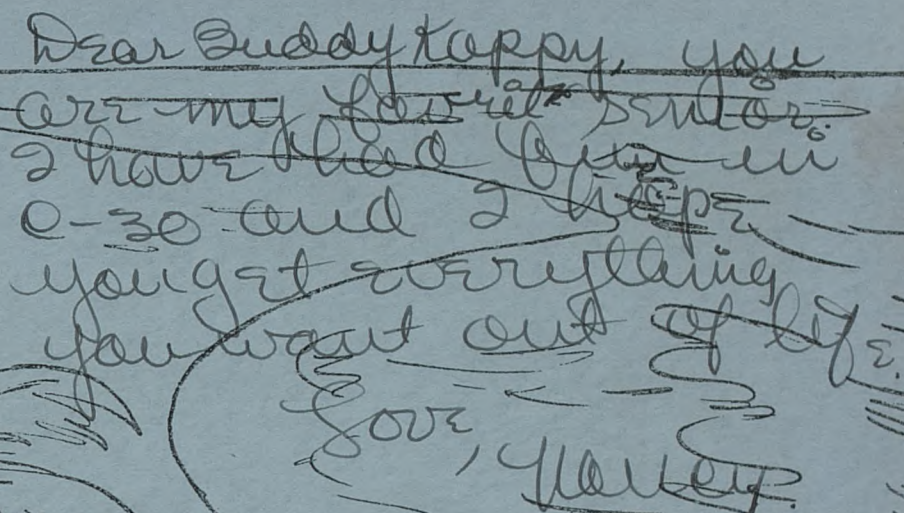 Dear Buddy Kappy, you
are my favorite senior.
I have had fun in
C-30 and I hope
you get everything
you want out of life.
Love,
Nancy.